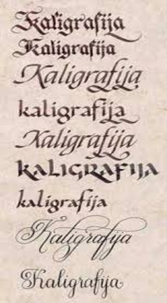 Kaligrafija
Kaligrafija
Kaligrafija
kaligrafija
Kaligrafija
KALIGRAFIJA
kaligrafija
Kaligrafija
Kaligrafija